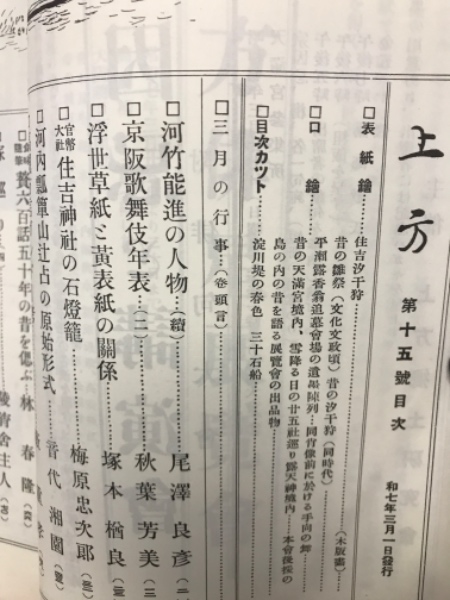 上方 第十五號目次
和七年三月一日發行
□表紙繪…住吉汐干狩……(木版畫)
□口繪
昔の雛祭(文化文政頃)昔の汐干狩(同時代)
平瀬露香翁追墓會場の遺墨陳列…同肖像前に於ける手向の舞
昔の天滿宮境內、雪降る日の廿五社巡り露天神境內……本會後援の
島の內の昔を語る展覽會の出品物
□目次カット……淀川堤の春色 三十石船
□三月の行事…(卷頭言)
□河竹能進の人物…(續)……尾澤良彥(二
□京阪歌舞伎年表…(二)……秋葉芳美(三
□浮世草紙と黃表紙の關係……塚本楢良(三
□官幣大社住吉神社の石燈籠……梅原忠次郎
□河內瓢簞山辻占の原始形式……田代湘園
贅六百話五十年の昔を偲ぶ…林春隆
舍主人